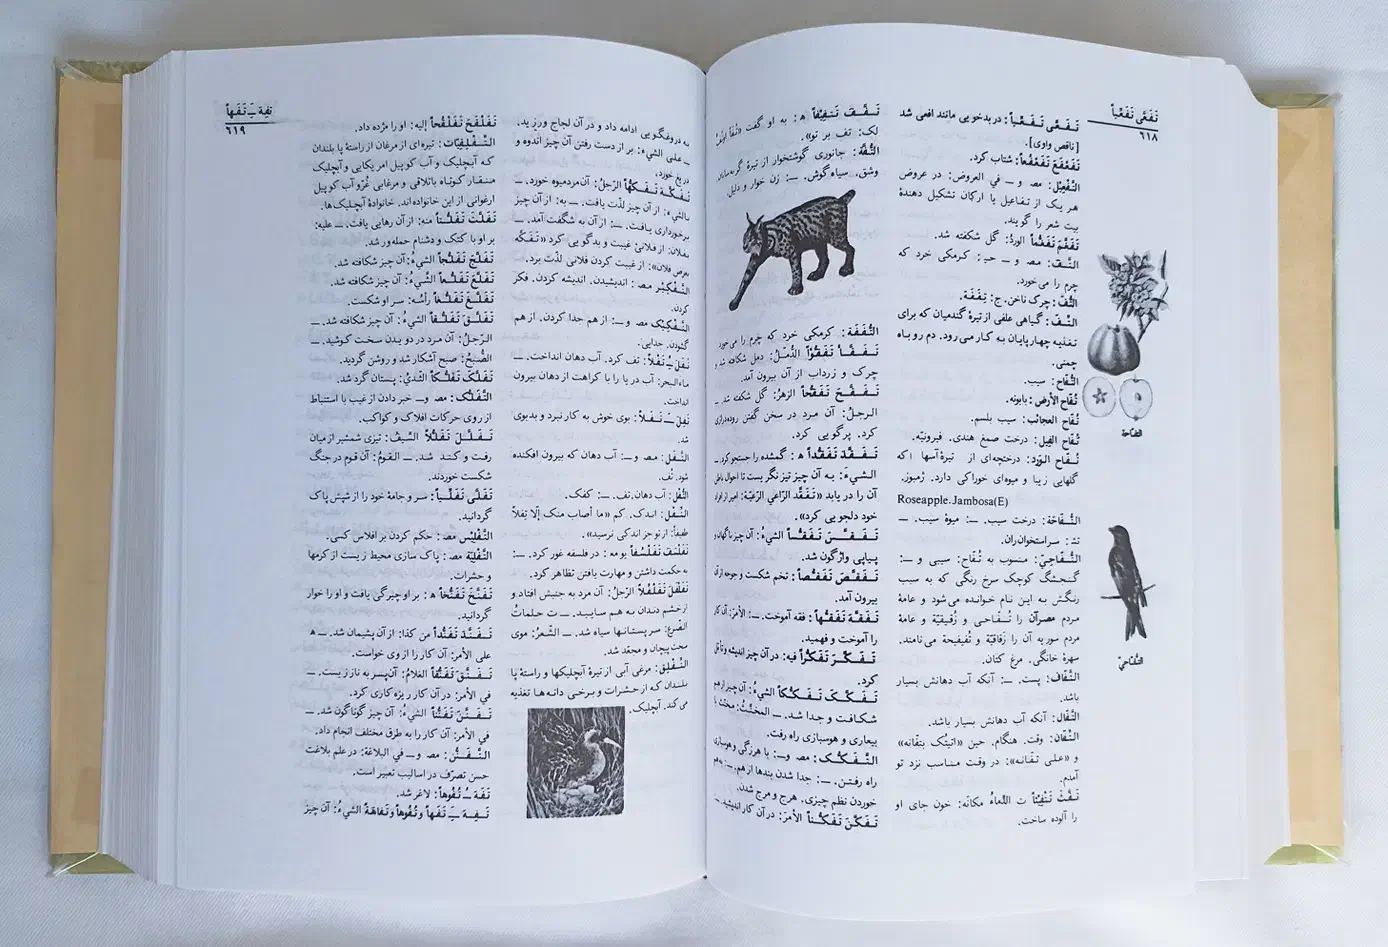 تَفَعَّى تَفَعِّیاً
٦١٨
تَـفَـعَّى تَـفَـعِّـیاً: در بدخویی مانند افعی شد
[ناقص واوی].
تَفَعْفَعَ تَفَعْفُعاً: شتاب کرد.
التَّفْعِیْل: مصـ و ـــ فی العروض: در عروض
هر یک از تفاعیل یا ارکان تشکیل دهندۀ
بیت شعر را گویند.
تَفَغَّمَ تَفَغُّماً الوردُ: گل شکفته شد.
چرم را می‌خورد.
التُّفّ: چرک ناخن. ج: تِفَفَة.
التُّـفّ: گیاهی علفی از تیرۀ گندمیان که برای
تغذیه چهارپایان به کار می‌رود. دم روباه
چمنی.
التُّفّاح: سیب.
تُفّاح الأرض: بابونه.
تُفّاح العجائب: سیب بلسم.
تُفّاح الفِیل: درخت صمغ هندی. فیرونیّه.
تُـفّـاح الـوَرد: درختچه‌ای از تیرۀ آسها که
گلهایی زیبا و میوه‌ای خوراکی دارد. ژمبوز.
Roseapple.Jambosa(E)
التُّـفّـاحَة: درخت سیب. ـــ: میوۀ سیب. ـــ
تثـ : سر استخوان ران.
التُّـفّـاحِـیّ: منسوب به تُفّاح: سیبی و ـــ:
گنجشگ کوچک سرخ رنگی که به سبب
رنگش به این نام خوانده می‌شود و عامۀ
مردم مصر آن را تُفّـاحـی و زُقَیقیّة و عامۀ
مردم سوریه آن را زقاقیّة و تُفیفیحة می‌نامند.
سهرۀ خانگی. مرغ کتان.
التَّفّاف: پست. ـــ: آنکه آب دهانش بسیار
باشد.
التَّفّال: آنکه آب دهانش بسیار باشد.
التِّـفّان: وقت. هنگام. حین «اتیتُک بتفّانه»
و «علـی تفـانه»: در وقت مناسب نزد تو
آمدم.
تَـفَّـثَ تَتْفِیْثاً ت الدّماءُ مکانَه: خون جای او
را آلوده ساخت.
التفّاحة
التُّفّاحیّ
تَـفَّـفَ تَـتْـفِیْفاً ه : به او گفت
لک: تف بر تو».
التُّفَّة: جانوری گوشتخوار از تیرۀ گربه‌سانان.
وشق. سیاه گوش. ـــ: زن خوار و ذلیل.
التُّفَفَة: کرمکی خرد که چرم را می‌خورد
تَـفَـقَّـأَ تَـفَقُّؤاً الدُّمّلُ: دمل شکافته شد و
چرک و زرداب از آن بیرون آمد.
تَـفَـقَّـحَ تَـفَقُّحاً الزهرُ: گل شکفته شد. ـــ
الرجلُ: آن مرد در سخن گفتن روده‌درازی
کرد. پرگویی کرد.
تَـفَـقَّـدَ تَـفَقُّداً ه : گمشده را جستجو کرد. ـــ
الشیءَ: به آن چیز تیز نگریست تا احوال
آن را در یابد «تَـفَقَّد الرّاعی الرّعیّة:
خود دلجویی کرد».
تَـفَـقَّـسَ تَـفَقُّساً الشیءُ: آن چیز ناگهان و
پیاپی واژگون شد.
تَـفَـقَّـصَ تَفَقُّصاً: تخم شکست و جوجه از آن
بیرون آمد.
تَـفَـقَّـهَ تَفَقُّهاً: فقه آموخت. ـــ الأمرَ: آن کار
را آموخت و فهمید.
تَـفَـکَّـرَ تَـفَکُّراً فیه: در آن چیز اندیشه و تأمّل
کرد.
تَـفَـکَّـکَ تَـفَـکُّـکاً الشیءُ: آن چیز از هم
شکافت و جدا شد. ـــ المخنَّثُ: مخنّث با
بیماری و هوسبازی راه رفت.
التَّـفَـکُّـک: مصـ و ـــ: با هرزگی و هوسبازی
راه رفتن. ـــ: جدا شدن بندها از هم.
خوردن نظم چیزی. هرج و مرج شدن.
تَـفَـکَّـنَ تَـفَکُّـناً الأمرَ: در آن کار اندیشید. ـــ
تَفِهَ ـَ تَفَهاً
٦١٩
به دروغگویی ادامه داد و در آن لجاج ورزید.
ـــ علی الشیءِ: بر از دست رفتن آن چیز اندوه و
دریغ خورد.
تَـفَـکَّـهَ تَـفَـکُّهاً الرّجلُ: آن مرد میوه خورد. ـــ
بالشیءِ: از آن چیز لذّت یافت. ـــ به: از آن چیز
برخورداری یافت. ـــ: از آن به شگفت آمد. ـــ
بفلان: از فلانی غیبت و بدگویی کرد «تَـفَکَّهَ
بعِرض فلان»: از غیبت کردن فلانی لذّت برد.
التَّفْکِیْر مصـ : اندیشیدن. اندیشه کردن. فکر
کردن.
التَّفْکِیْک مصـ و ـــ: از هم جدا کردن. از هم
گشودن. جدایی.
تَفَلَ ـُـِ تَفْلاً: تف کرد. آب دهان انداخت. ـــ
ماءَ البحر: آب دریا را با کراهت از دهان بیرون
انداخت.
تَفِلَ ـــَ تَـفَـلاً: بوی خوش به کار نبرد و بدبوی
شد.
التَّـفْـل: مصـ و ـــ: آب دهان که بیرون افکنده
شود. تُف.
التُّفْل: آب دهان. تف. ـــ: کفک.
التِّـفْـل: انـدک. کم «ما أصاب منک إلّا تِفلاً
طفیفاً: از تو جز اندکی نرسید».
تَفَلْسَفَ تَفَلْسُفاً یو معـ : در فلسفه غور کرد. ـــ:
به حکمت داشتن و مهارت یافتن تظاهر کرد.
تَفَلْفَلَ تَفَلْفُلاً الرّجلُ: آن مرد به جنبش افتاد و
از خشم دندان به هم سایید. ـــ ت حلماتُ
الضّرع: سر پستانها سیاه شد. ـــ الشّعرُ: موی
سخت پیچان و مجعّد شد.
التُّفْلِق: مرغی آبی از تیرۀ آبچلیکها و راستۀ پا
بلندان که از حشرات و برخی دانه‌ها تغذیه
می‌کند. آبچلیک.
تَفَلْقَحَ تَفَلْقُحاً إلیه: او را مژده داد.
التُّـفْـلِـقِیّات: تیره‌ای از مرغان از راستۀ پا بلندان
که آبچلیک و آب کوپیل امریکایی و آبچلیک
منقار کوتاه باتلاقی و مرغابی غُرّو آب کوپیل
ارغوانی از این خانواده‌اند. خانوادۀ آبچلیک‌ها.
تَـفَلَّتَ تَـفَلُّتاً منه: از آن رهایی یافت. ـــ علیه:
بر او با کتک و دشنام حمله‌ور شد.
تَـفَلَّجَ تَـفَلُّجاً الشیءُ: آن چیز شکافته شد.
تَـفَلَّعَ تَـفَلُّعاً الشّیءُ: آن چیز شکافته شد.
تَـفَلَّغَ تَـفَلُّغاً رأسُه: سر او شکست.
تَـفَلَّقَ تَـفَلُّقاً الشیءُ: آن چیز شکافته شد. ـــ
الرّجلُ: آن مرد در دویدن سخت کوشید. ـــ
الصُّبحُ: صبح آشکار شد و روشن گردید.
تَـفَلَّکَ تَـفَلُّکاً الثّدیُ: پستان گرد شد.
التَّفَلُّک: مصـ و ـــ خبر دادن از غیب با استنباط
از روی حرکات افلاک و کواکب.
تَـفَـلَّـلَ تَـفَلُّلاً السّیفُ: تیزی شمشیر از میان
رفت و کند شد. ـــ القومُ: آن قوم در جنگ
شکست خوردند.
تَفَلَّى تَفَلِّـیاً: سر و جامۀ خود را از شپش پاک
گردانید.
التَّفْلِیْس مصـ : حکم کردن بر افلاس کسی.
التَّفْلِیَة مصـ : پاک سازی محیط زیست از کرمها
و حشرات.
تَـفَنَّخَ تَـفَنُّخاً ه : بر او چیرگی یافت و او را خوار
گردانید.
تَـفَـنَّـدَ تَـفَنُّداً من کذا: از آن پشیمان شد. ـــ ه
علی الأمر: آن کار را از وی خواست.
تَـفَـنَّـقَ تَـفَنُّقاً الغلامُ: آن پسر به ناز زیست. ـــ
فی الأمر: در آن کار ریزه کاری کرد.
تَـفَـنَّـنَ تَـفَنُّناً الشیءُ: آن چیز گوناگون شد. ـــ
فی الأمر: آن کار را به طرق مختلف انجام داد.
التَّـفَـنُّن: مصـ و ـــ فی البلاغة: در علم بلاغت
حسن تصرّف در اسالیب تعبیر است.
تَفَهَ ـُ تُفُوهاً: لاغر شد.
تَـفِـهَ ـَ تَفَهاً و تُفُوهاً و تَفاهَةً الشیءُ: آن چیز